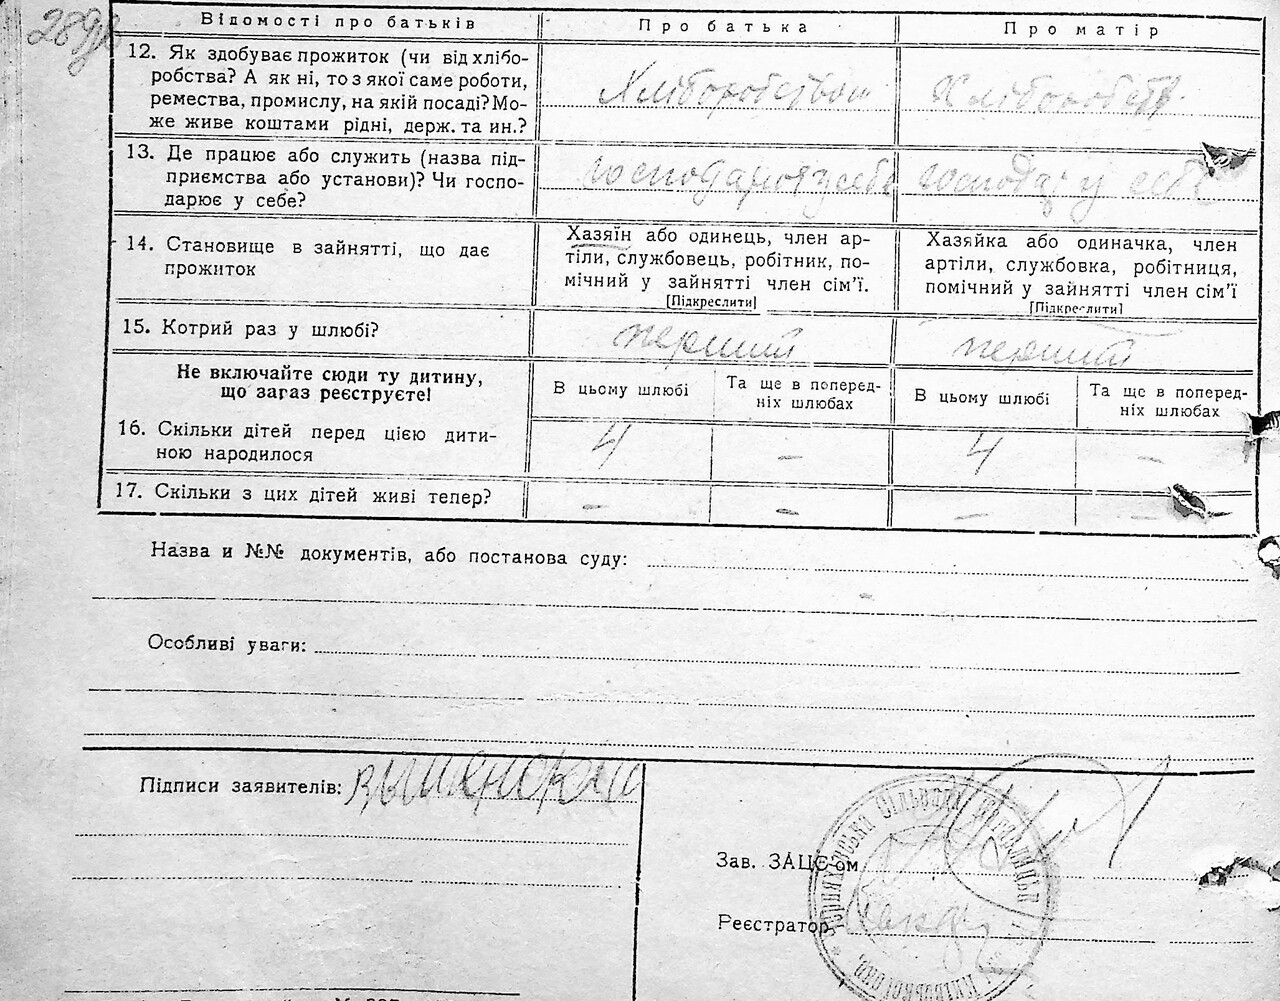 289
Відомості про батьків
Про батька
Про матір
12. Як здобуває прожиток (чи від хлібо-
робства? А як ні, то з якої саме роботи,
ремества, промислу, на якій посаді? Мо-
же живе коштами рідні, держ. та ин.?
Хліборобством
Хліборобств
13. Де працює або служить (назва під-
приємства або установи)? Чи госпо-
дарює у себе?
господарює у себе
господар у себе
14. Становище в зайнятті, що дає
прожиток
Хазяїн або одинець, член ар-
тіли, службовець, робітник, по-
мічний у зайнятті член сім’ї.
[Підкреслити]
Хазяйка або одиначка, член
артіли, службовка, робітниця,
помічний у зайнятті член сім’ї
[Підкреслити]
15. Котрий раз у шлюбі?
перший
перший
Не включайте сюди ту дитину,
що загаз реєструєте!
В цьому шлюбі
Та ще в поперед-
ніх шлюбах
В цьому шлюбі
Та ще в поперед-
ніх шлюбах
16. Скільки дітей перед цією дити-
ною народилося
4
–
4
–
17. Скільки з цих дітей живі тепер?
–
–
–
–
Назва и №№ документів, або постанова суду:
Особливі уваги:
Підписи заявителів:
Зав. ЗАЦС'ом
Реєстратор